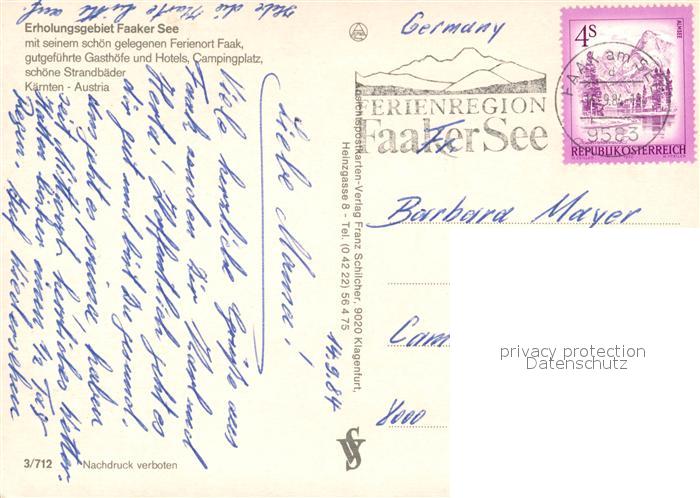 Hebe die Karte bitte auf.
Erholungsgebiet Faaker See
mit seinem schön gelegenen Ferienort Faak,
gutgeführte Gasthöfe und Hotels, Campingplatz,
schöne Strandbäder
Kärnten - Austria
14.9.84
Liebe Mama!
Viele herzliche Grüße aus
Faak senden Dir Kurt und
Hoffentlich geht es
Dir gut und bist Du gesund,
uns geht es prima, haben
seit Mittwoch herrliches Wetter
hatten bisher einen ½ Tag
Regen. Auf Wiedersehen
3/712 Nachdruck verboten
Ansichtspostkarten-Verlag Franz Schilcher, 9020 Klagenfurt,
Heinzgasse 8 - Tel. (0 42 22) 56 4 75
Germany
FERIENREGION
Faaker See
FAAK am SEE
9583
4S
ALMSEE
REPUBLIK ÖSTERREICH
Fr.
Barbara Mayer
Cam
8000
privacy protection
Datenschutz